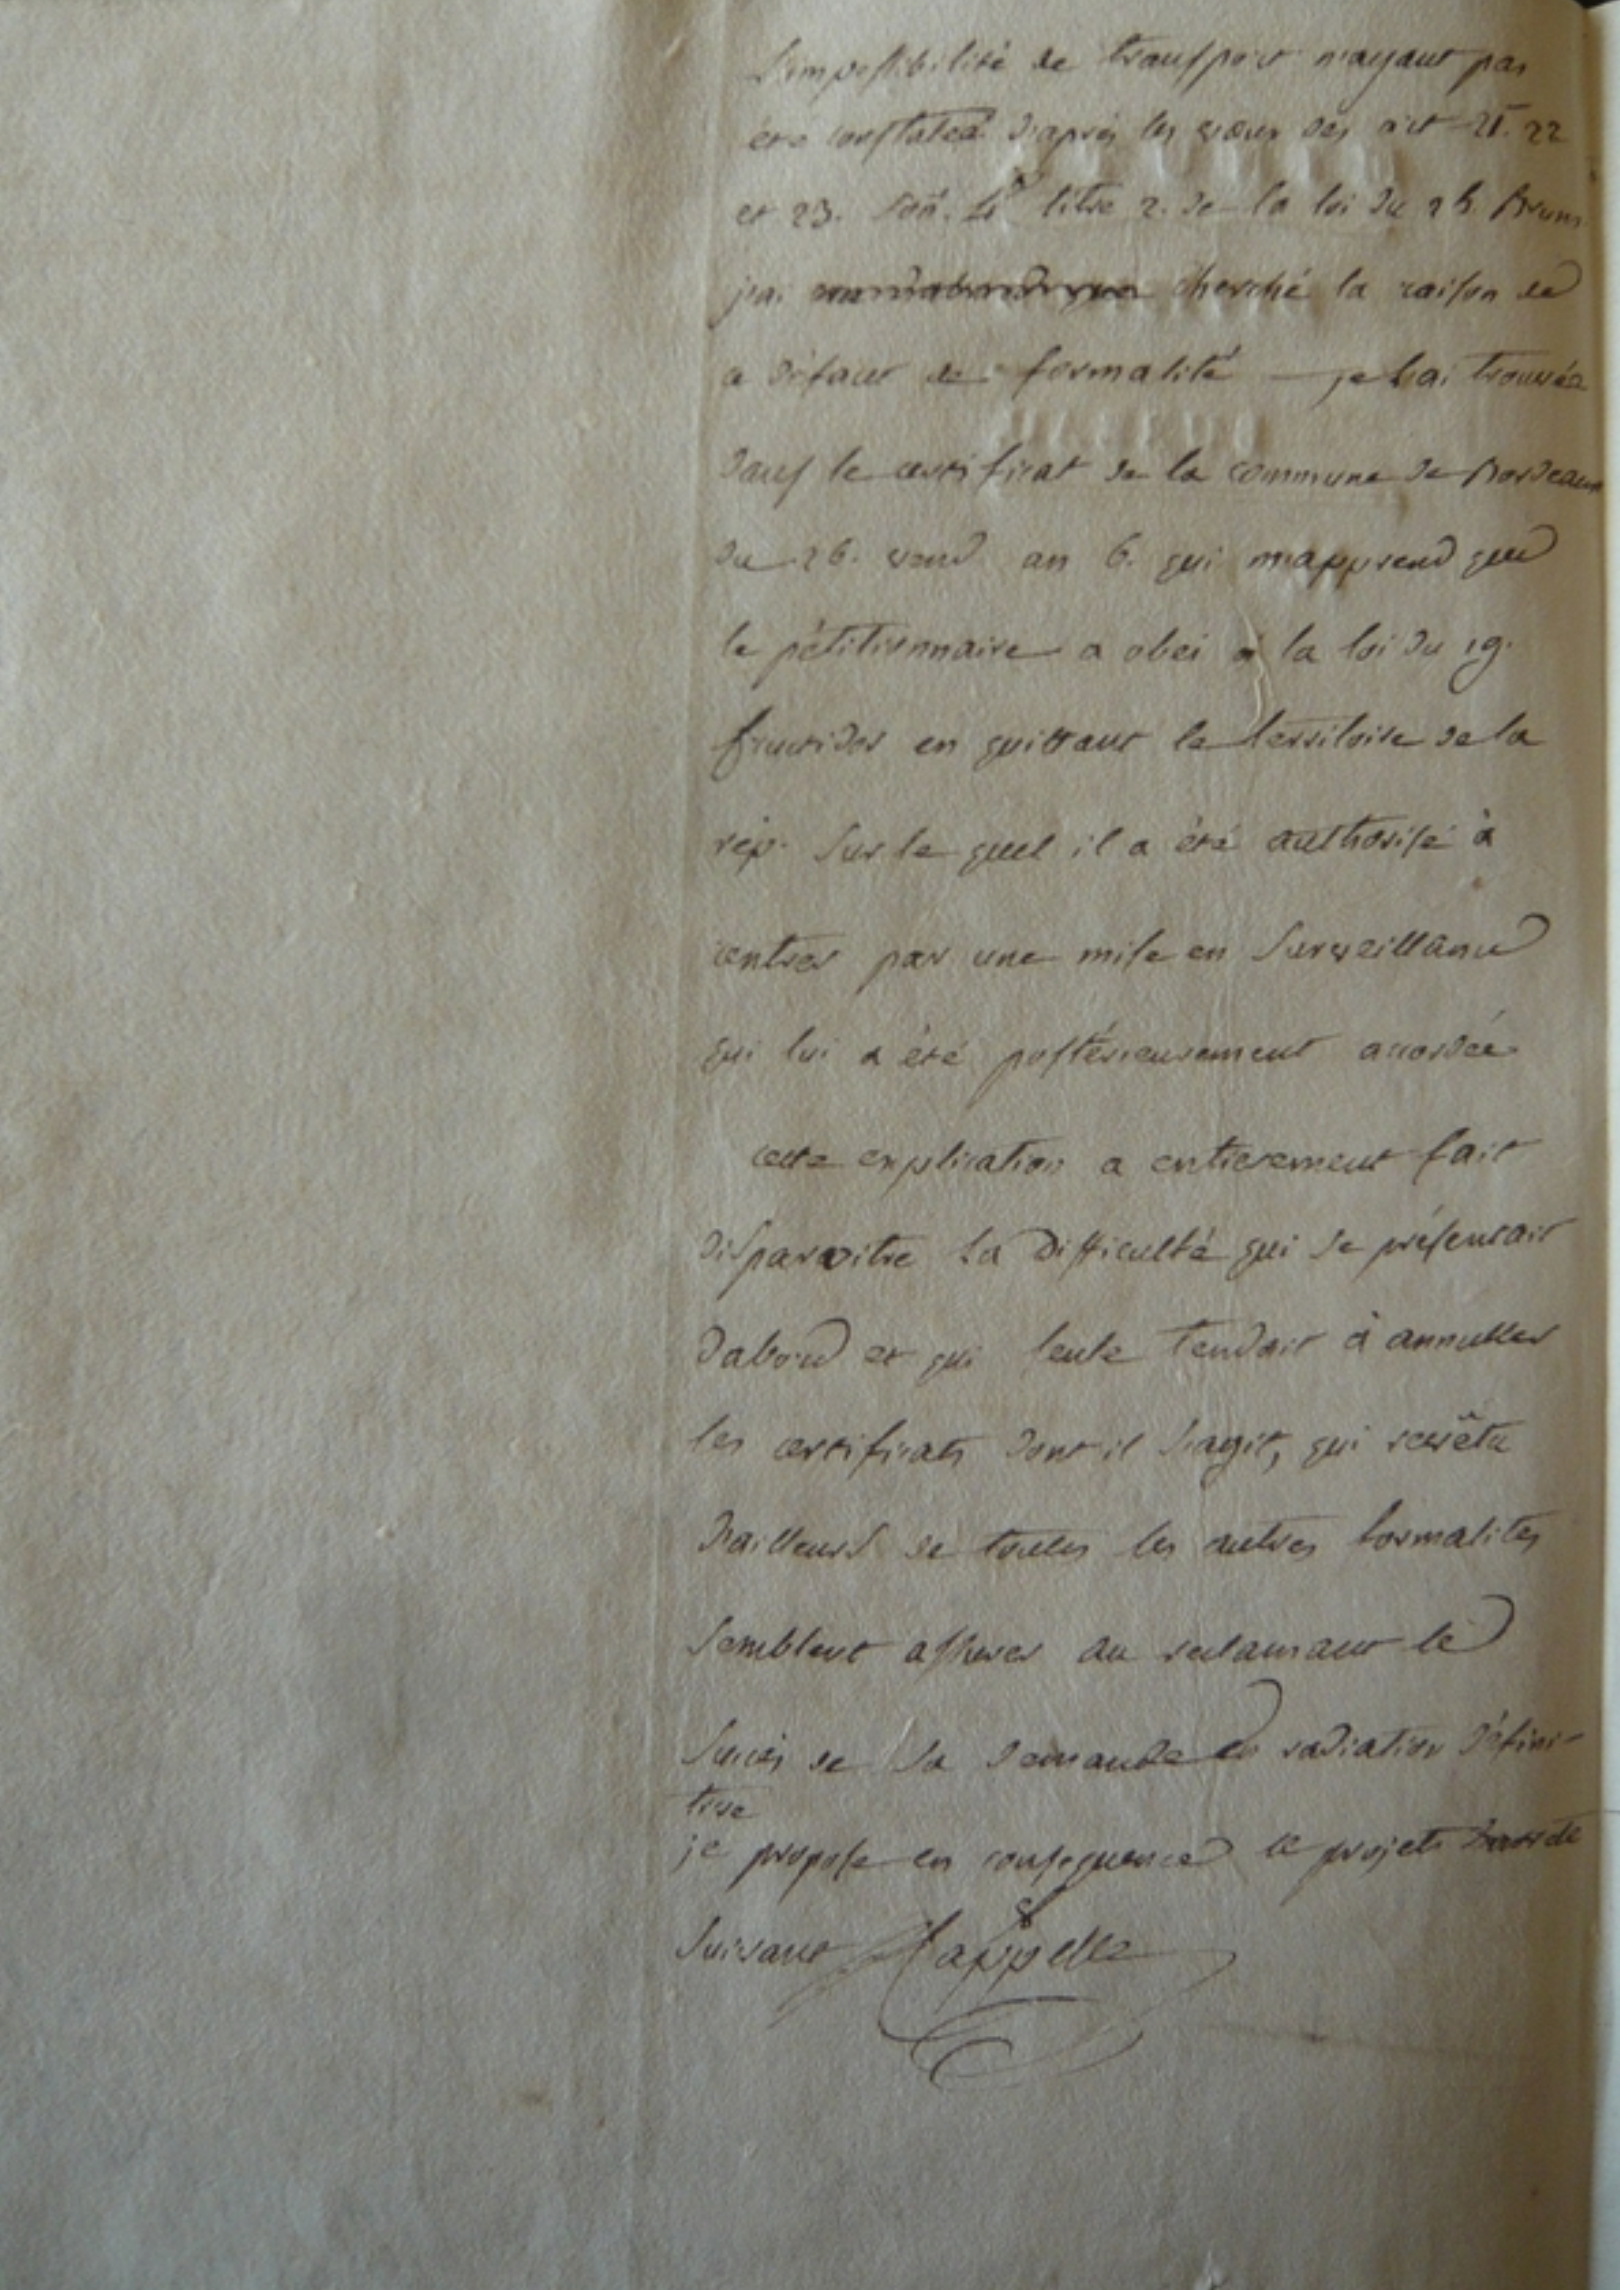 l'impossibilité de transport n'ayant pas
été constatée d'après les vœux des art 21. 22
et 23. titre 2. de la loi du 25. Brum
j'ai cherché la raison de
ce défaut de formalité — je l'ai trouvée
dans le certificat de la commune de Bordeaux
du 26. vend an 6. qui m'apprend que
le pétitionnaire a obei à la loi du 19.
fructidor en quittant le territoire de la
rép. sur le quel il a été authorisé à
rentrer par une mise en surveillance
qui lui a été postérieurement accordée
cette explication a entierement fait
disparoitre la difficulté qui se présentait
dabord et qui seule tendait à annuller
les certificats dont il s'agit, qui revêtu
d'ailleurs de toutes les autres formalités
semblent assurer au reclamant le
succès de sa demande en radiation défini-
tive
je propose en consequence le projet
suivant Cappelle